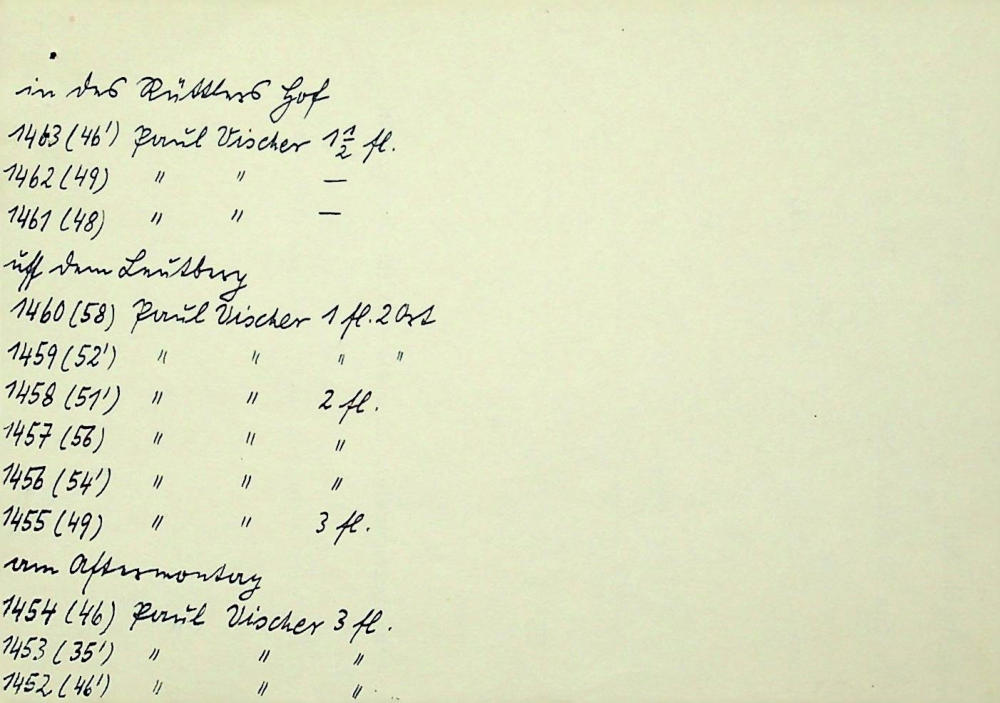 in des Rüttlers Hof
1463 (46') Paul Vischer 1 1/2 fl.
1462 (49) " " —
1461 (48) " " —
uff dem Leutberg
1460 (58) Paul Vischer 1 fl. 2 Ort
1459 (52') " " " "
1458 (51') " " 2 fl.
1457 (56) " " "
1456 (54') " " "
1455 (49) " " 3 fl.
am Aftermontag
1454 (46) Paul Vischer 3 fl.
1453 (35') " " "
1452 (46') " " "